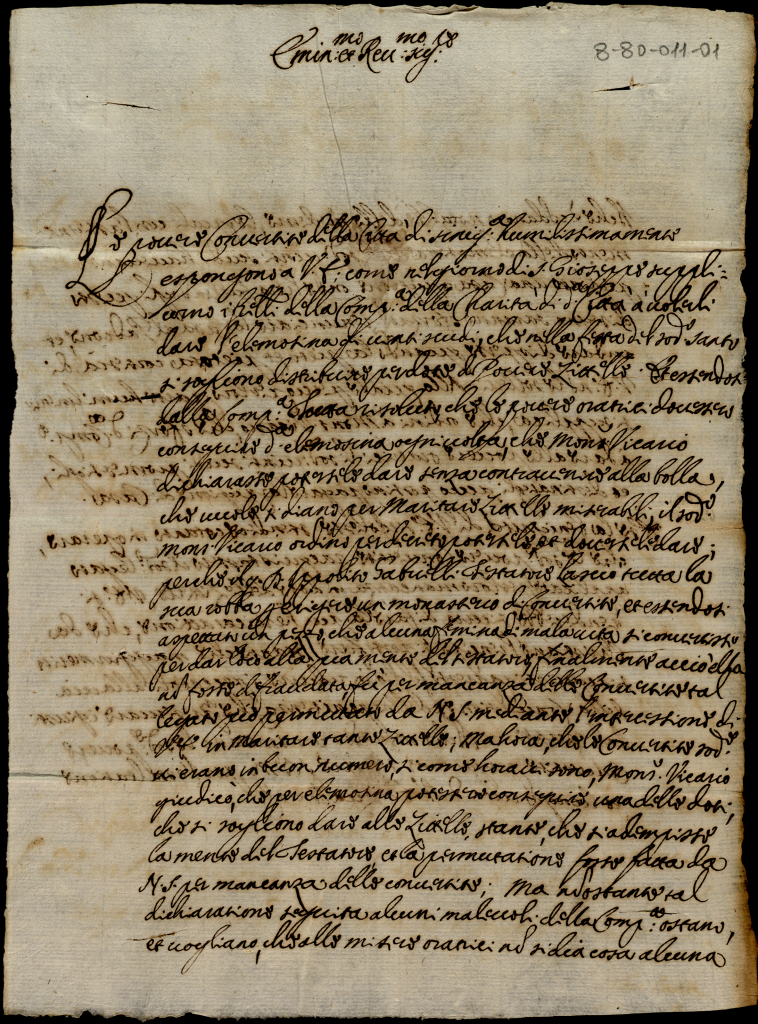 Emin:mo et Reu:mo sig:re
8-80-011-01
Le pouere Conuertite della Citta di sinig:a humilissimamente
espongono a V.E. come nel giorno di S. Gioseppe suppli=
corno i fratelli della Comp:a della Charità di d:a Citta a uolerli
dare l'elemosina di uenti scudi, che nella festa del sod:o santo
si sogliono distribuire per dote di Pouere Zittelle. Et essendosi
dalla Comp:a risoluto, che le pouere oratrici douessero
conseguire d:a elemosina ogni uolta, che Mons:r Vicario
dichiarasse potersele dare senza contrauenire alla bolla,
che uuole si diano per Maritare Zittelle miserabili, il sod:o
mons:r Vicario ordinò per decreto potersele, et douersele dare;
perche il q. Ippolito Gabrielli Testatore lasciò tutta la
sua robba per erigere un monasterio di Conuertite, et essendosi
aspettato un pezzo, che alcuna femina di mala uita si conuertisse
per dar loco alla pia mente del testatore, finalmente acciò essa
nō forse defraudata fù per mancanza delle Conuertite tal
legato poi permutato da N.S. mediante l'intercessione di
V.E. in maritare tante Zittelle; Ma hora, che le Conuertite sod:e
u'erano in buon numero, si come hora ui sono, Mons:r Vicario
giudicò, che per elemosina potessero conseguire una delle doti,
che si sogliono dare alle Zittelle, stante, che si adempisse
la mente del Testatore, et la permutatione fosse fatta da
N.S. per mancanza delle conuertite; Ma nō ostante tal
dichiaratione seguita alcuni maleuoli della Comp:a ostano,
et uogliano, che alle misere oratrici nō si dia cosa alcuna